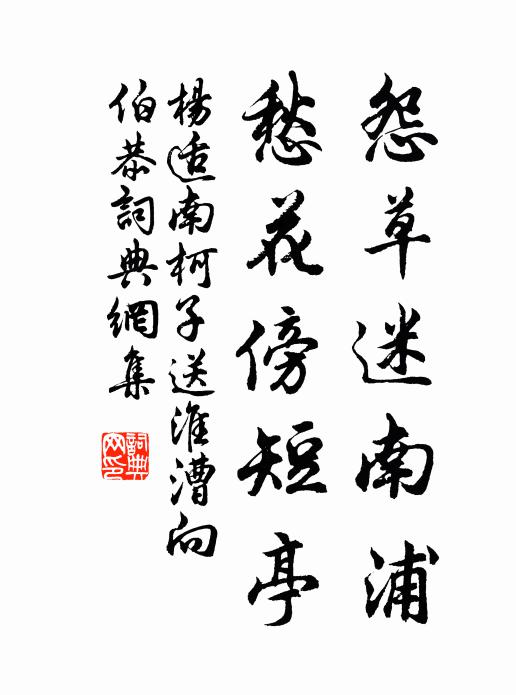 怨草迷南浦
愁花傍短亭
楊适南柯子送淮漕向
伯恭詞典網集
詞典網印